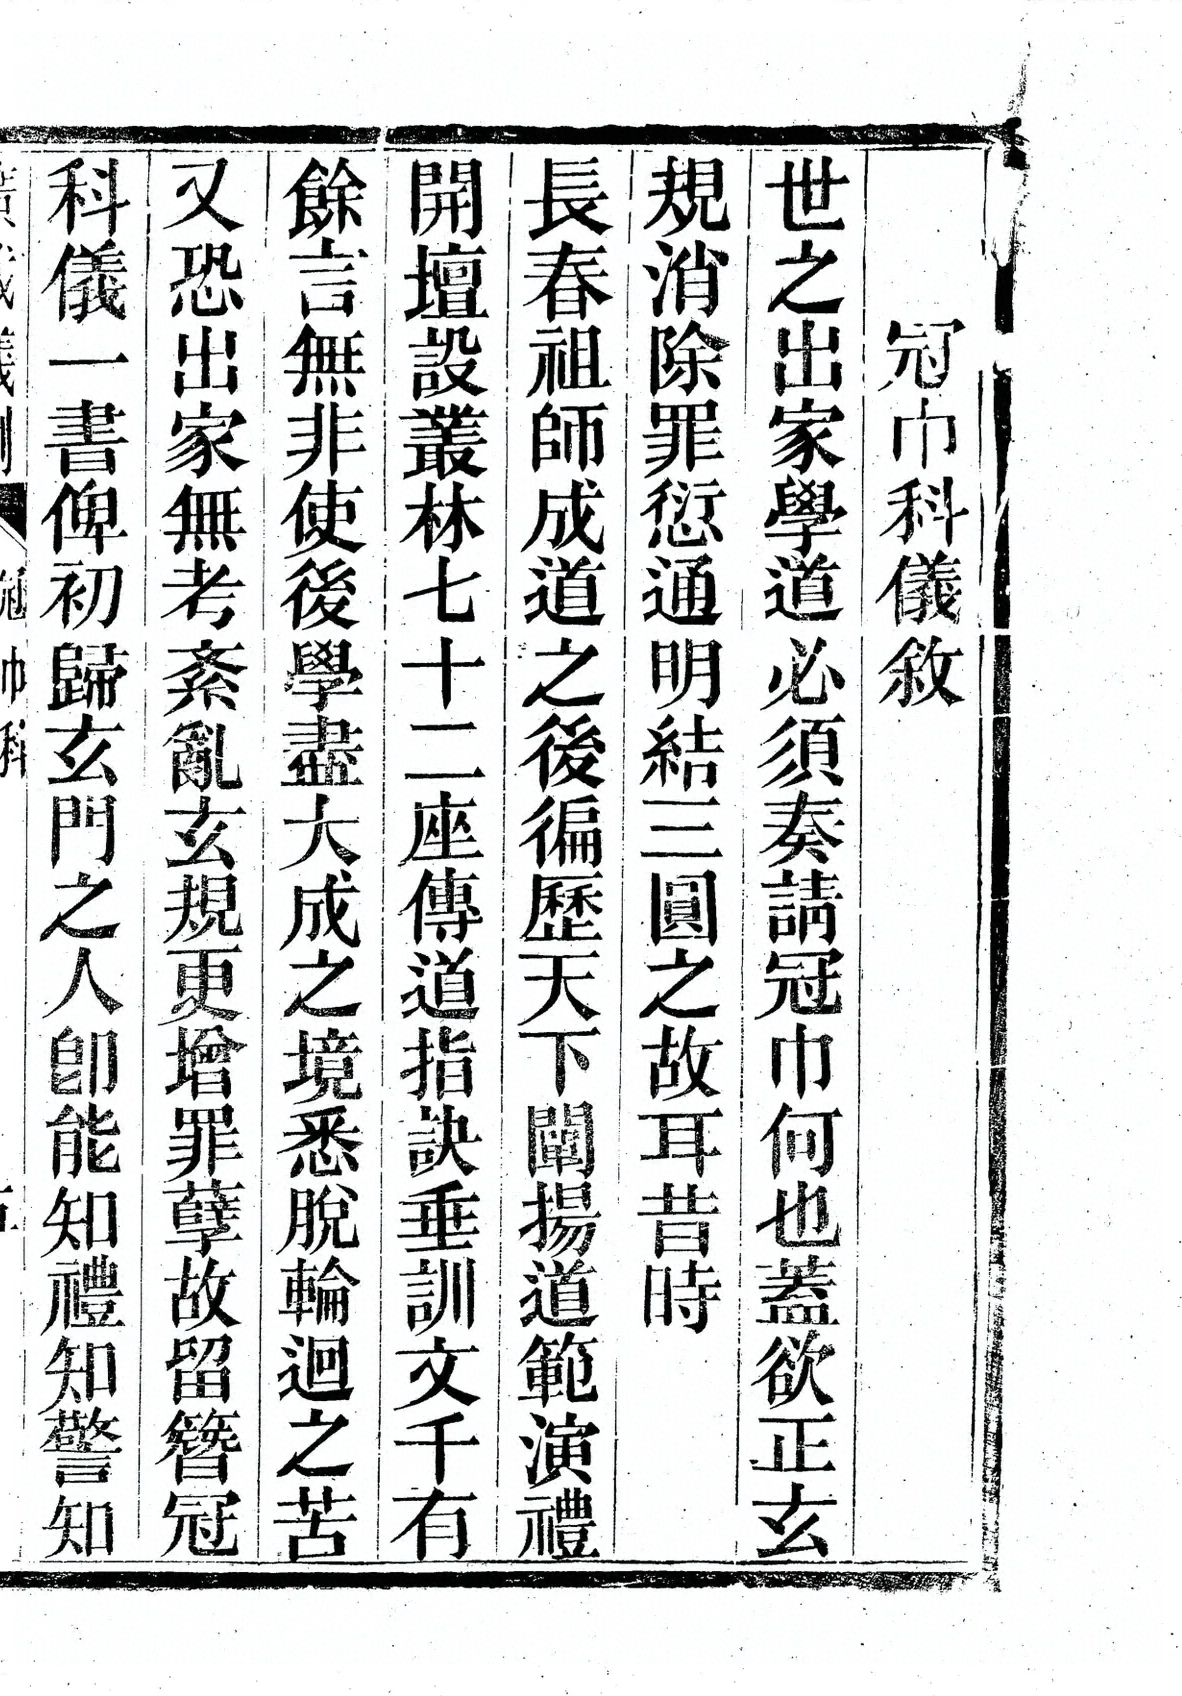 冠巾科儀敘
世之出家學道必須奏請冠巾何也蓋欲正玄
規消除罪愆通明結三圓之故耳昔時
長春祖師成道之後徧歷天下闡揚道範演禮
開壇設叢林七十二座傳道指訣垂訓文千有
餘言無非使後學盡大成之境悉脫輪迴之苦
又恐出家無考紊亂玄規更增罪孽故留簪冠
科儀一書俾初歸玄門之人卽能知禮知警知